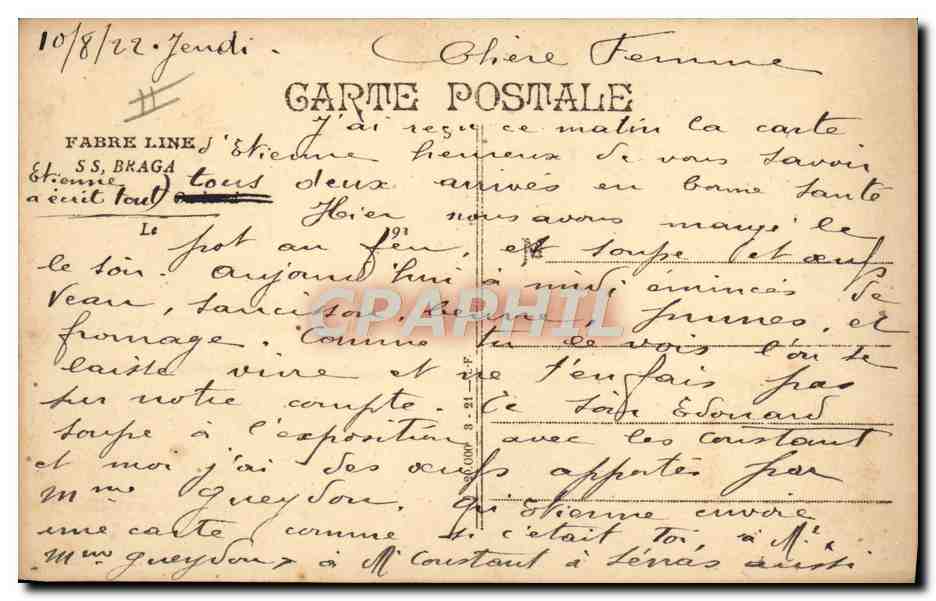 10/8/22. Jeudi.
Chère Femme
CARTE POSTALE
J'ai reçu ce matin la carte
FABRE LINE
d'Etienne heureux de vous savoir
SS, BRAGA
tous deux arrivés en bonne santé
Etienne
a écrit tout)
Hier nous avons mangé le
Le
192
pot au feu, et soupe et œufs
le soir. aujourd'hui à midi émincés de
veau, saucisson, beurre, prunes, et
fromage. Comme tu le vois l'on se
laisse vivre et ne t'en fais pas
sur notre compte. Ce soir Edouard
soupe à l'exposition avec les Constant
et moi j'ai des œufs apportés par
Mme Gueydon. Qu'Etienne envoie
une carte comme si c'était Toi à Mr &
Mme Gueydon & à Mr Constant à aussi
20.000 3-21 - L.F
CPAPHIL